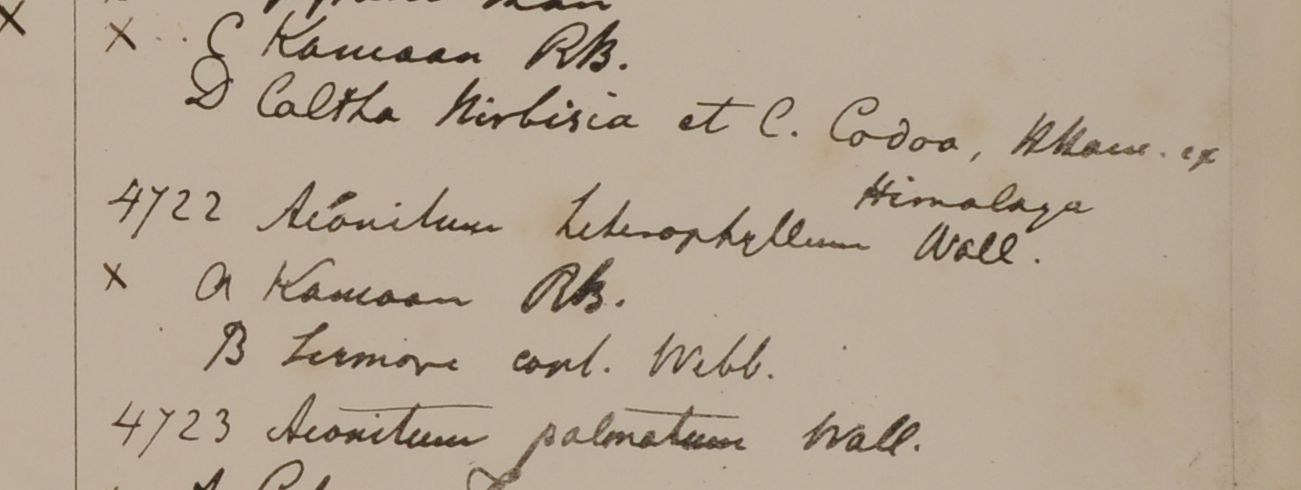 × C Kamaon RB.
D Caltha Nirbisia et C. Codoa, Ham. ex
Himalaya
4722 Aconitum heterophyllum Wall.
× A Kamaon RB.
B Sermore Webb.
4723 Aconitum palmatum Wall.